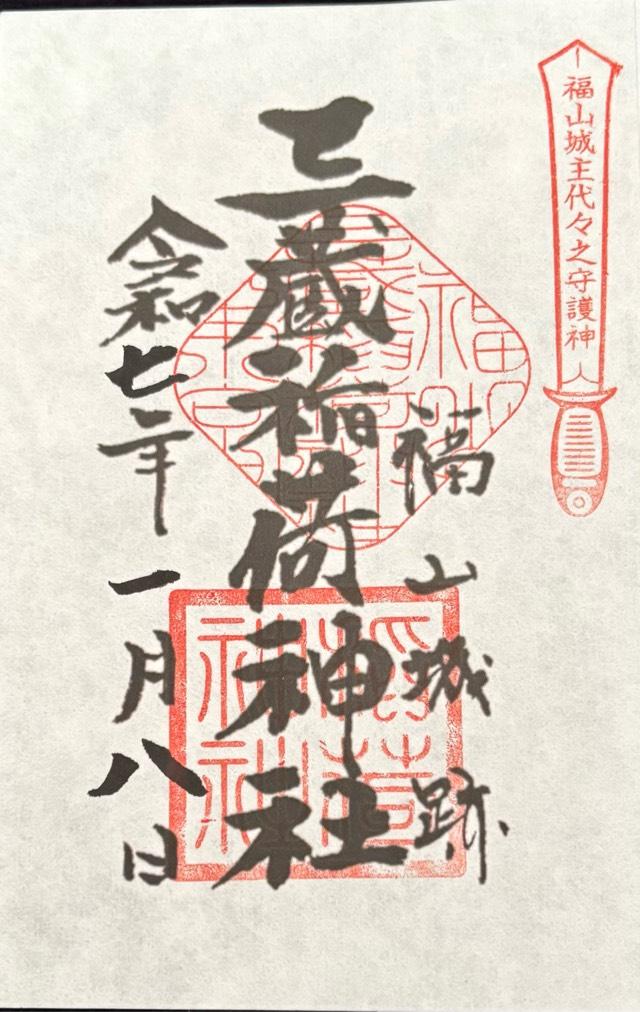 福山城主代々之守護神
福山城跡
三蔵稲荷神社
令和七年一月八日